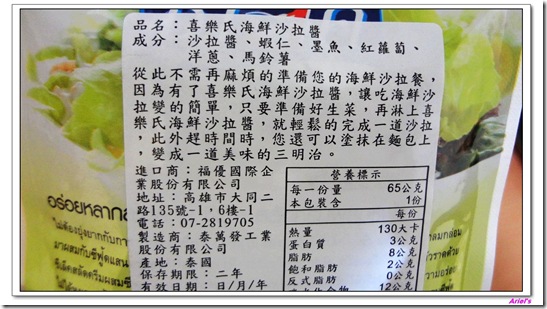 品名：喜樂氏海鮮沙拉醬
成分：沙拉醬、蝦仁、墨魚、紅蘿蔔、
洋蔥、馬鈴薯
從此不需再麻煩的準備您的海鮮沙拉餐，
因為有了喜樂氏海鮮沙拉醬，讓吃海鮮沙
拉變的簡單，只要準備好生菜，再淋上喜
樂氏海鮮沙拉醬，就輕鬆的完成一道沙拉
，此外趕時間時，您還可以塗抹在麵包上
，變成一道美味的三明治。
進口商：福優國際企
業股份有限公司
地址：高雄市大同二
路135號-1，6樓-1
電話：07-2819705
製造商：泰萬發工業
股份有限公司
產地：泰國
保存期限：二年
有效日期：日/月/年
營養標示
每一份量 65公克
本包裝含 1份
每份
熱量 130大卡
蛋白質 3公克
脂肪 8公克
飽和脂肪 2公克
反式脂肪 0公克
碳水化合物 12公克
Ariel's